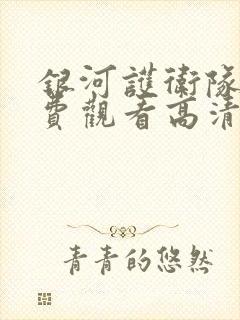 銀河護衛隊
費觀看高清
青青的悠然